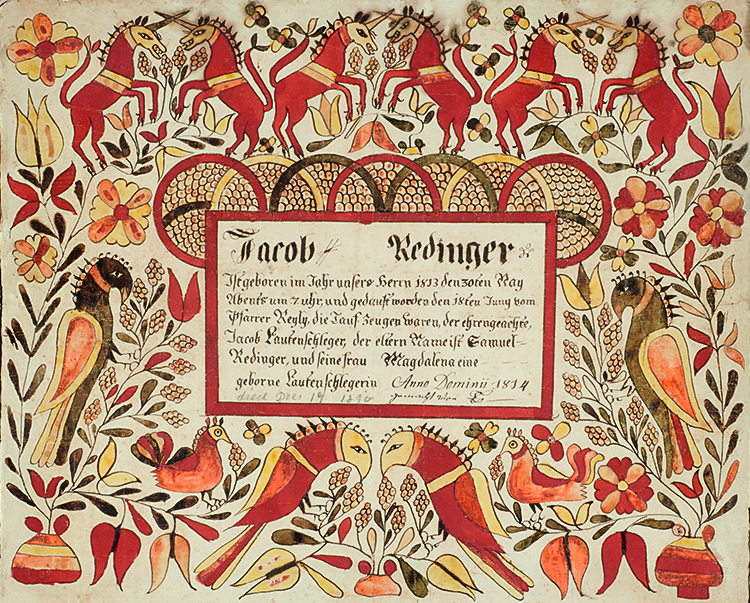 Jacob Redinger
Ist geboren im Jahr unsers Herrn 1813 den 30ten May
Abents um 7 uhr, und gedauft worden den 18ten Juny vom
Pfarrer Reyly, die Tauf Zeugen waren, der ehrengeachte,
Jacob Lautenschleger, der eltern Name ist Samuel-
Redinger, und seine frau Magdalena eine
geborne Lautenschlegerin Anno Dominii 1814
died Dec 19 gemacht von